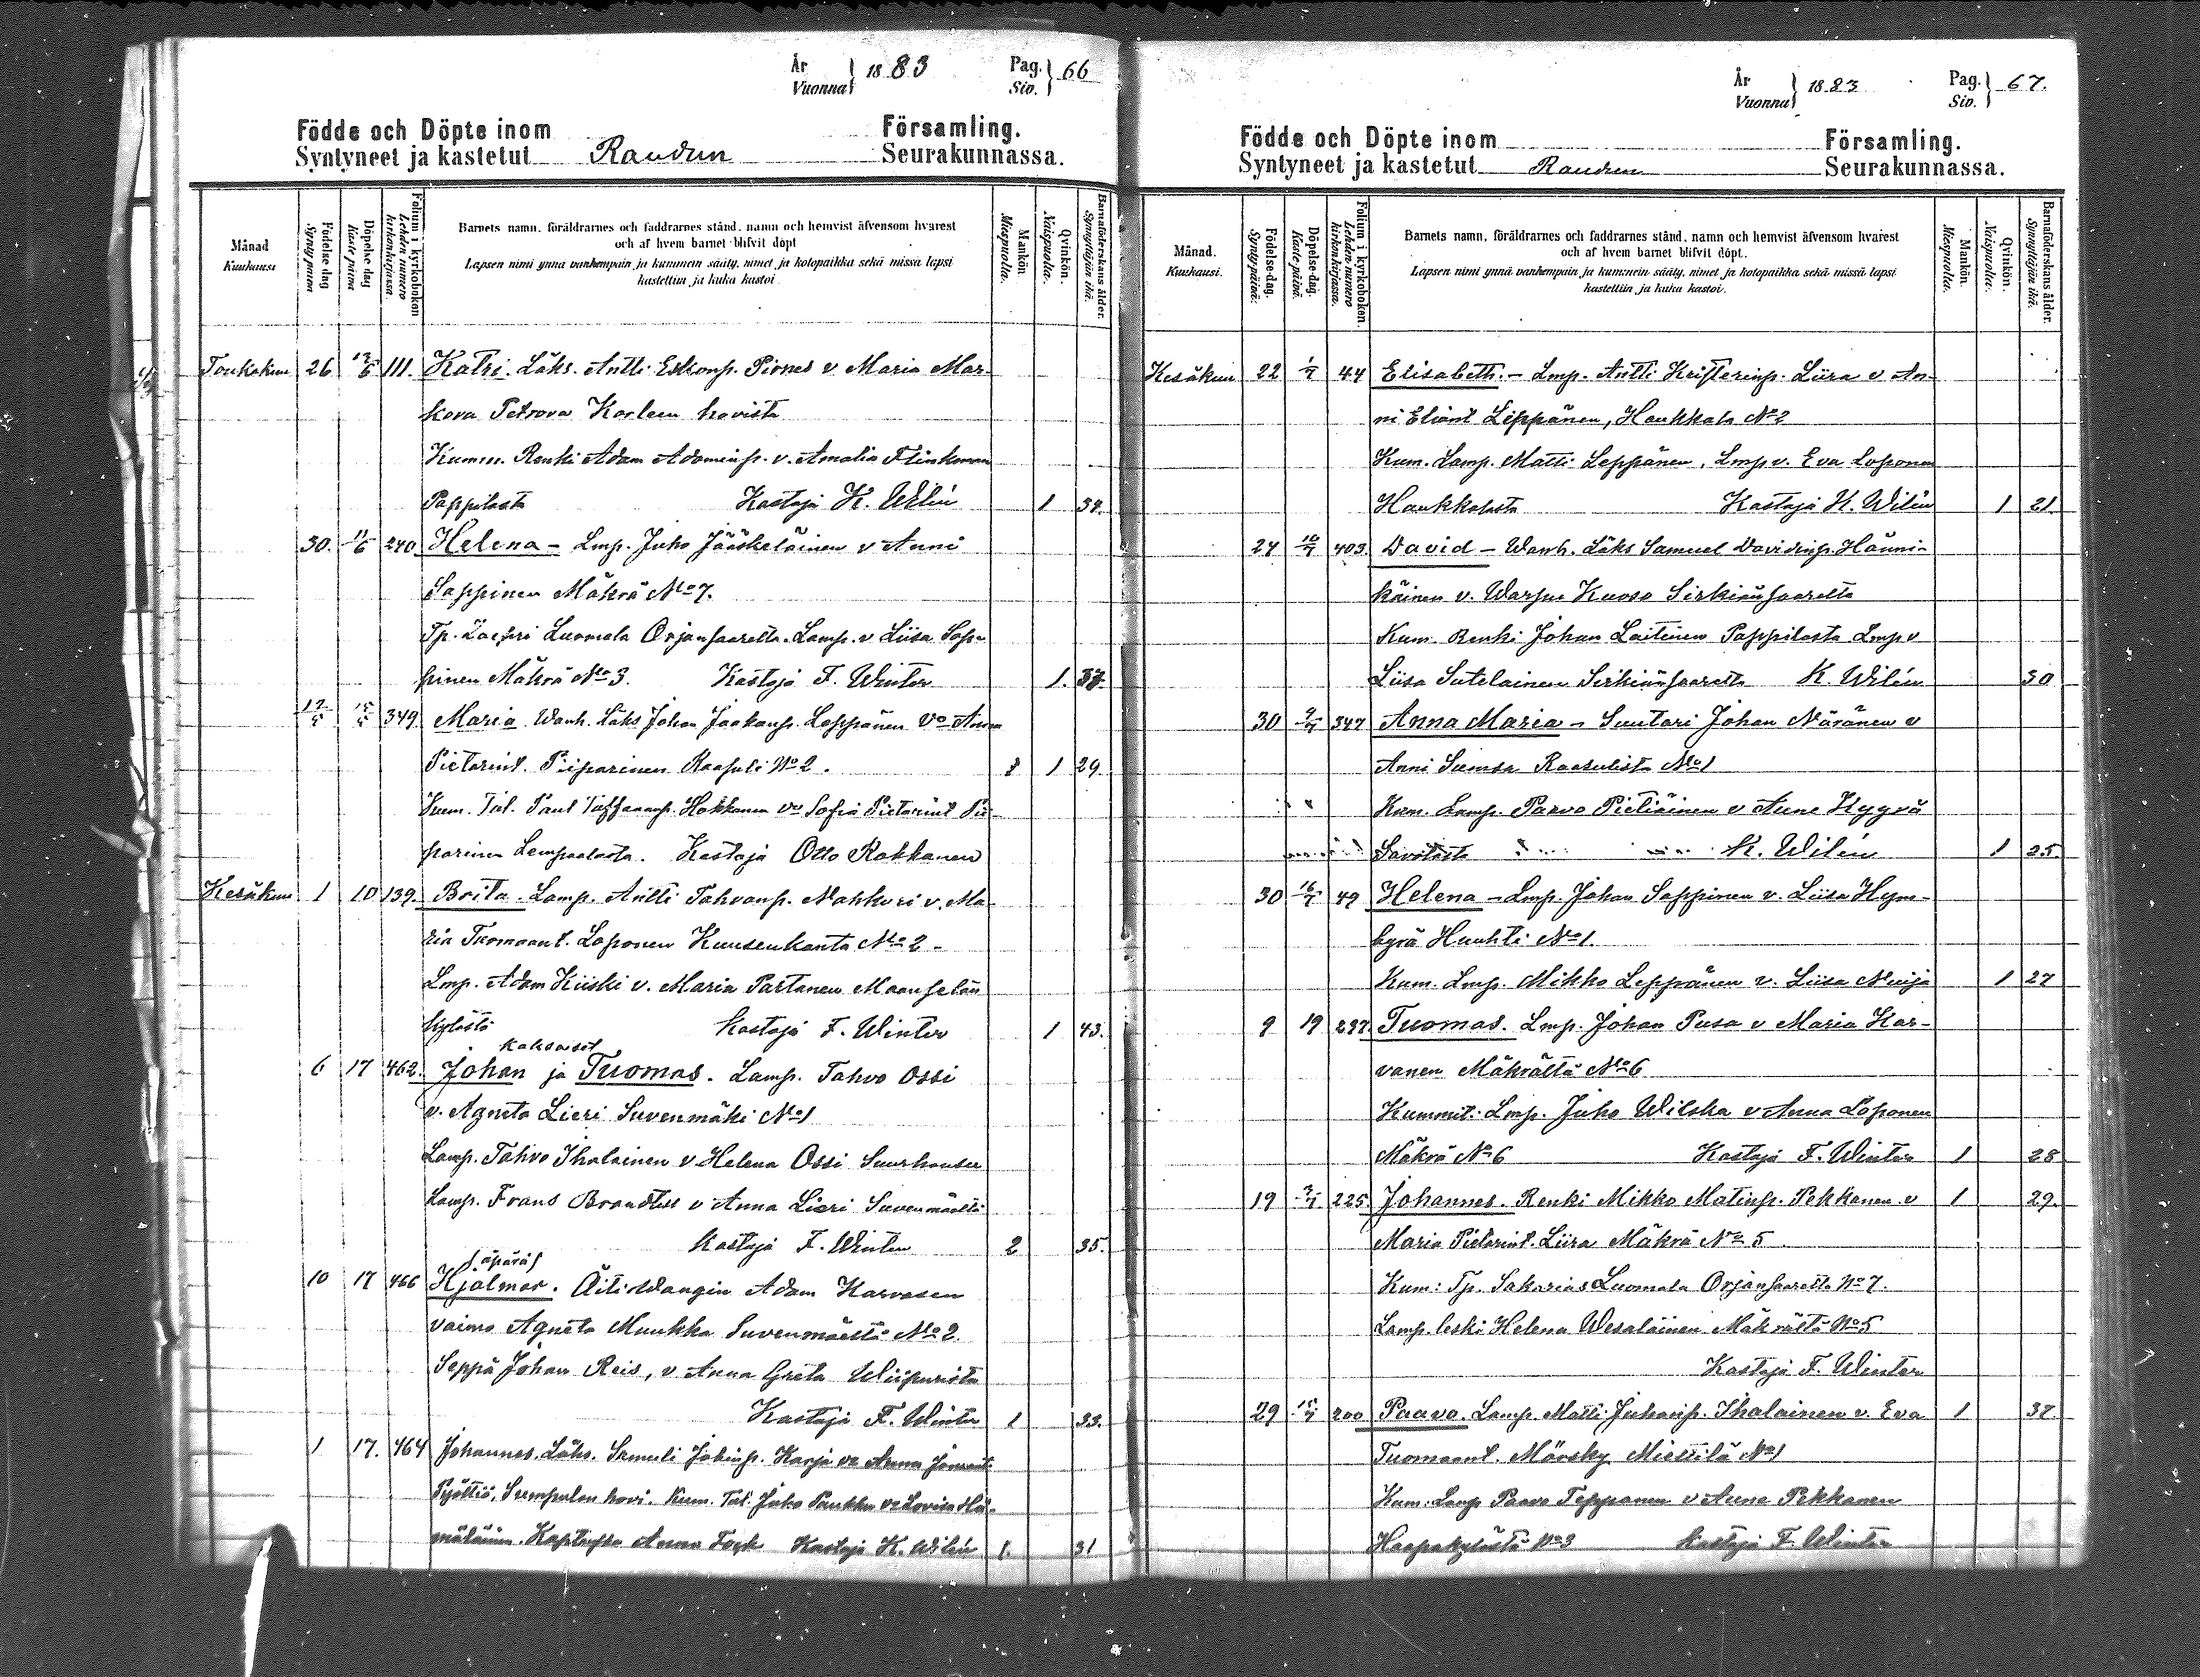 År
Vuonna } 1883 Pag.
Siv. } 66
Födde och Döpte inom Församling.
Syntyneet ja kastetut Raudun Seurakunnassa.
Månad
Kuukausi
Födelse dag
Synty päivä
Döpelse dag
Kaste päivä
Folium i kyrkobokon
Lehden numero
kirkonkirjassa.
Barnets namn, föräldrarnes och faddrarnes stånd, namn och hemvist äfvensom hvarest
och af hvem barnet blifvit döpt
Lapsen nimi ynnä vanhempain ja kummein sääty, nimet ja kotopaikka sekä missä lapsi
kastettiin ja kuka kastoi
Mankön.
Miespuolta.
Qvinkön.
Naispuolta.
Barnaföderskans ålder.
Synnyttäjän ikä.
Toukokuu 26 13/6 111. Katri. Läks. Antti Esk.np. Piones v. Maria Mar-
kova Petrova Korleen hovista
Kumm. Renki Adam Adaminp. v. Amalia Flinkman
Pappilasta Kastaja K. Wilén 1
30. 11/6 240 Helena - Lmp. Juho Jääskeläinen v Anni
Soppinen Mäkrä No 7.
Tp. Luomala Orjansaarelta. Lamp. v Liisa Sop-
pinen Mäkrä No 3. Kastaja F. Winter 1. 37.
349 Maria Wanh. Läks Johan Jaakonp. Leppänen Vo Anna
Pietarint. Piiparinen Raasuli No 2. 1 29.
Kum. Tal. Paul Hokkanen vo Sofia Pietarint Pii-
parinen Lempaalasta. Kastaja Otto Rokkanen
Kesäkuu 1 10 139. Brita. Lamp. Antti Tahvonp. Nahkuri v. Ma-
ria Tuomaant. Loponen Kuusenkanta No 2 -
Lmp. Adam Kiiski v. Maria Partanen Maanselän
kylästä Kastaja F. Winter 1 43.
kaksoiset
6 17 462. Johan ja Tuomas. Lamp. Tahvo Ossi
v. Agneta Lieri Suvenmäki No 1
Lamp. Tahvo Iholainen v. Helena Ossi
Lamp. Frans v Anna Lieri Suvenmäeltä
Kastaja F. Winter 2 35.
äpärä
10 17 466 Hjalmar. Äiti Wangin Adam Karvosen
vaimo Agneta Muukka Suvenmäestä No 2.
Seppä Johan Reis, v Anna Greta Wiipurista
Kastaja F. Winter 1 33.
1 17. 464 Johannes. Läks. Samuli Karja vo Anna
Pyöttiö, Sumpulan hovi. Kum. Tal. Juho Paukku vo Lovisa Hä-
mäläinen. Anna Kastaja K. Wilén 1. 31
År
Vuonna } 1883 Pag.
Siv. } 67.
Födde och Döpte inom Församling.
Syntyneet ja kastetut Raudun Seurakunnassa.
Månad.
Kuukausi.
Födelse-dag.
Synty-päivä.
Döpelse-dag.
Kaste-päivä.
Folium i kyrkobokon.
Lehden numero
kirkonkirjassa.
Barnets namn, föräldrarnes och faddrarnes stånd, namn och hemvist äfvensom hvarest
och af hvem barnet blifvit döpt.
Lapsen nimi ynnä vanhempain ja kummein sääty, nimet ja kotopaikka sekä missä lapsi
kastettiin ja kuka kastoi.
Mankön.
Miespuolta.
Qvinkön.
Naispuolta.
Barnaföderskans ålder.
Synnyttäjän ikä.
Kesäkuu 22 1/7 44 Elisabeth. - Lmp. Antti Kristerinp. Liira v An-
ni Eliant Leppänen, Haukkala No 2
Kum. Lamp. Matti Leppänen, Lmp v. Eva Loponen
Haukkalasta Kastaja K. Wilén 1 21
24 10/7 403. David - Wanh. Läks Samuel Davidinp. Hänni-
käinen v. Warpu Kuoso Sirkiänsaarelta
Kum. Renki Johan Laitinen Pappilasta Lmp v
Liisa Sutelainen Sirkiänsaarelta K. Wilén 30
30 9/7 347 Anna Maria - Suutari Johan Näränen v
Anni Sumsa Raasulista No 1
Kum. Lamp. Parvo Pietiäinen v Anne Kyyrä
Savolasta K. Wilén 1 25.
30 16/7 49 Helena - Lmp. Johan Soppinen v. Liisa Hyn-
kyrä Huuhti No 1.
Kum. Lmp. Mikko Leppänen v. Liisa Nuija 1 27
9 19 237. Tuomas. Lmp. Johan Pusa v Maria Kar-
vanen Mäkrältä No 6
Kummit: Lmp. Juho Wilska v Anna Loponen
Mäkrä No 6 Kastaja F. Winter 1 28
19 225. Johannes. Renki Mikko Matinp. Pekkanen v 1 29.
Maria Pietarint. Liira Mäkrä No 5
Kum: Tp. Sakarias Luomala Orjansaarelta No 7.
Lamp. leski Helena Wesaläinen Mäkrältä No 5
Kastaja F. Winter
29 15/7 200 Paavo. Lamp. Matti Juhonp. Iholainen v. Eva 1 37.
Tuomaant. Mörsky Miettilä No 1
Kum. Lamp Paavo Teppanen v Anna Pekkanen
Haapakylästä No 3 Kastaja F. Winter